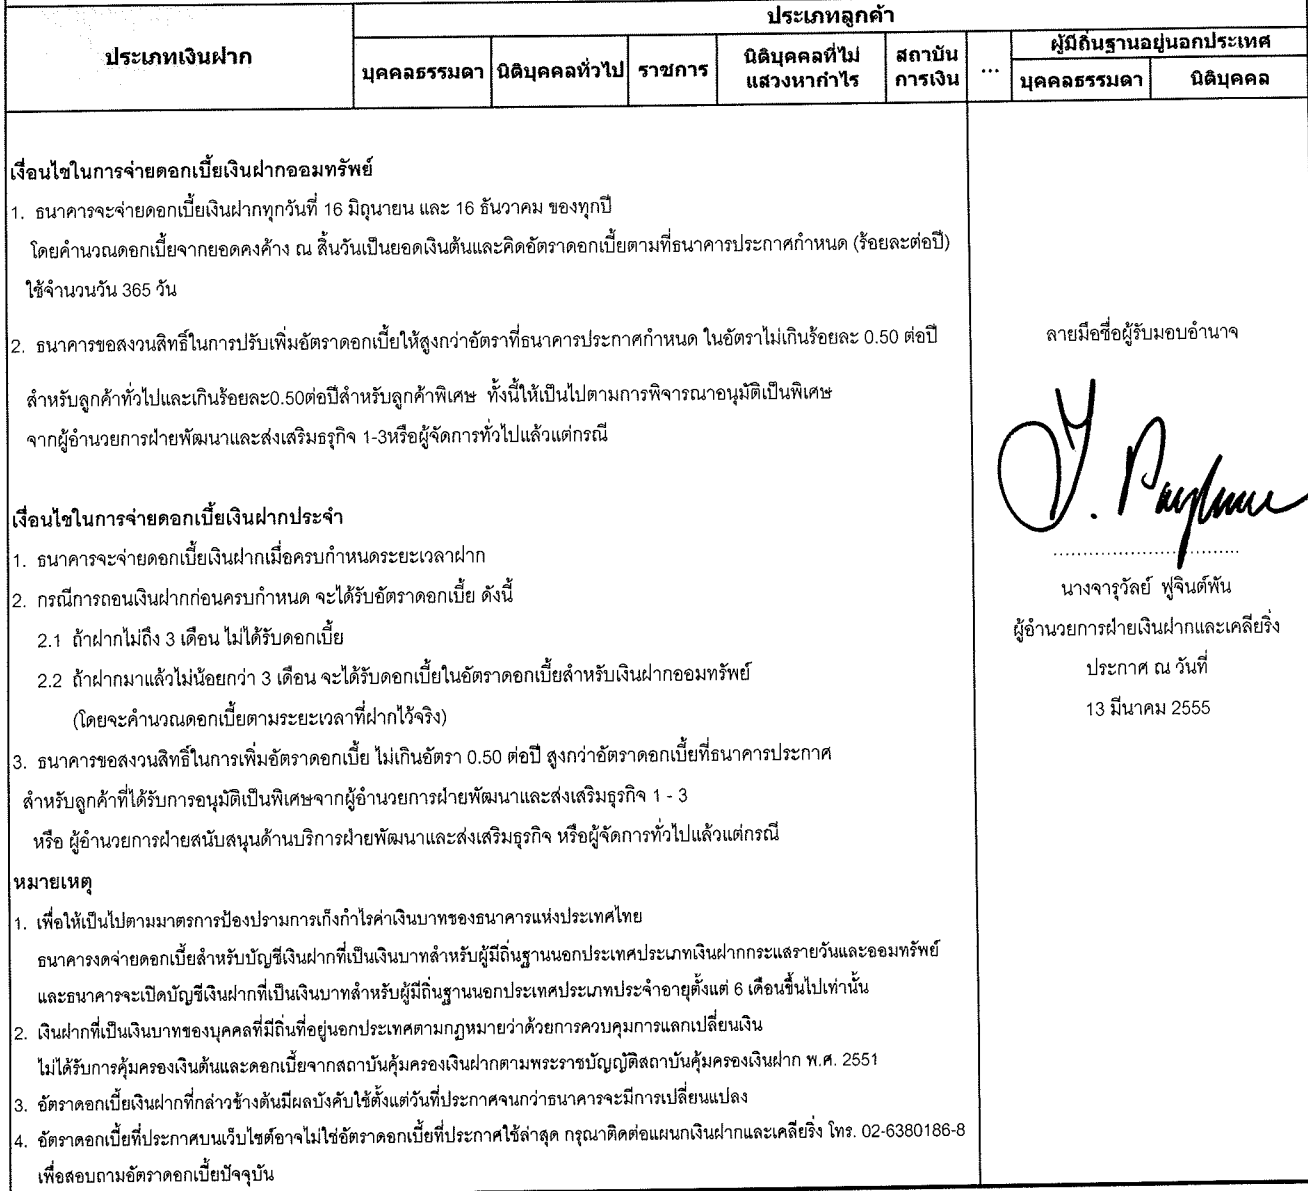 ประเภทเงินฝาก
ประเภทลูกค้า
บุคคลธรรมดา
นิติบุคคลทั่วไป
ราชการ
นิติบุคคลที่ไม่
แสวงหากำไร
สถาบัน
การเงิน
...
ผู้มีถิ่นฐานอยู่นอกประเทศ
บุคคลธรรมดา
นิติบุคคล
เงื่อนไขในการจ่ายดอกเบี้ยเงินฝากออมทรัพย์
1. ธนาคารจะจ่ายดอกเบี้ยเงินฝากทุกวันที่ 16 มิถุนายน และ 16 ธันวาคม ของทุกปี
โดยคำนวณดอกเบี้ยจากยอดคงค้าง ณ สิ้นวันเป็นยอดเงินต้นและคิดอัตราดอกเบี้ยตามที่ธนาคารประกาศกำหนด (ร้อยละต่อปี)
ใช้จำนวนวัน 365 วัน
2. ธนาคารขอสงวนสิทธิ์ในการปรับเพิ่มอัตราดอกเบี้ยให้สูงกว่าอัตราที่ธนาคารประกาศกำหนด ในอัตราไม่เกินร้อยละ 0.50 ต่อปี
สำหรับลูกค้าทั่วไปและเกินร้อยละ0.50ต่อปีสำหรับลูกค้าพิเศษ ทั้งนี้ให้เป็นไปตามการพิจารณาอนุมัติเป็นพิเศษ
จากผู้อำนวยการฝ่ายพัฒนาและส่งเสริมธรุกิจ 1-3หรือผู้จัดการทั่วไปแล้วแต่กรณี
เงื่อนไขในการจ่ายดอกเบี้ยเงินฝากประจำ
1. ธนาคารจะจ่ายดอกเบี้ยเงินฝากเมื่อครบกำหนดระยะเวลาฝาก
2. กรณีการถอนเงินฝากก่อนครบกำหนด จะได้รับอัตราดอกเบี้ย ดังนี้
2.1 ถ้าฝากไม่ถึง 3 เดือน ไม่ได้รับดอกเบี้ย
2.2 ถ้าฝากมาแล้วไม่น้อยกว่า 3 เดือน จะได้รับดอกเบี้ยในอัตราดอกเบี้ยสำหรับเงินฝากออมทรัพย์
(โดยจะคำนวณดอกเบี้ยตามระยะเวลาที่ฝากไว้จริง)
3. ธนาคารขอสงวนสิทธิ์ในการเพิ่มอัตราดอกเบี้ย ไม่เกินอัตรา 0.50 ต่อปี สูงกว่าอัตราดอกเบี้ยที่ธนาคารประกาศ
สำหรับลูกค้าที่ได้รับการอนุมัติเป็นพิเศษจากผู้อำนวยการฝ่ายพัฒนาและส่งเสริมธุรกิจ 1 - 3
หรือ ผู้อำนวยการฝ่ายสนับสนุนด้านบริการฝ่ายพัฒนาและส่งเสริมธุรกิจ หรือผู้จัดการทั่วไปแล้วแต่กรณี
หมายเหตุ
1. เพื่อให้เป็นไปตามมาตรการป้องปรามการเก็งกำไรค่าเงินบาทของธนาคารแห่งประเทศไทย
ธนาคารงดจ่ายดอกเบี้ยสำหรับบัญชีเงินฝากที่เป็นเงินบาทสำหรับผู้มีถิ่นฐานนอกประเทศประเภทเงินฝากกระแสรายวันและออมทรัพย์
และธนาคารจะเปิดบัญชีเงินฝากที่เป็นเงินบาทสำหรับผู้มีถิ่นฐานนอกประเทศประเภทประจำอายุตั้งแต่ 6 เดือนขึ้นไปเท่านั้น
2. เงินฝากที่เป็นเงินบาทของบุคคลที่มีถิ่นที่อยู่นอกประเทศตามกฎหมายว่าด้วยการควบคุมการแลกเปลี่ยนเงิน
ไม่ได้รับการคุ้มครองเงินต้นและดอกเบี้ยจากสถาบันคุ้มครองเงินฝากตามพระราชบัญญัติสถาบันคุ้มครองเงินฝาก พ.ศ. 2551
3. อัตราดอกเบี้ยเงินฝากที่กล่าวข้างต้นมีผลบังคับใช้ตั้งแต่วันที่ประกาศจนกว่าธนาคารจะมีการเปลี่ยนแปลง
4. อัตราดอกเบี้ยที่ประกาศบนเว็บไซต์อาจไม่ใช่อัตราดอกเบี้ยที่ประกาศใช้ล่าสุด กรุณาติดต่อแผนกเงินฝากและเคลียริ่ง โทร. 02-6380186-8
เพื่อสอบถามอัตราดอกเบี้ยปัจจุบัน
ลายมือชื่อผู้รับมอบอำนาจ
................................
นางจารุวัลย์ ฟูจินต์พัน
ผู้อำนวยการฝ่ายเงินฝากและเคลียริ่ง
ประกาศ ณ วันที่
13 มีนาคม 2555